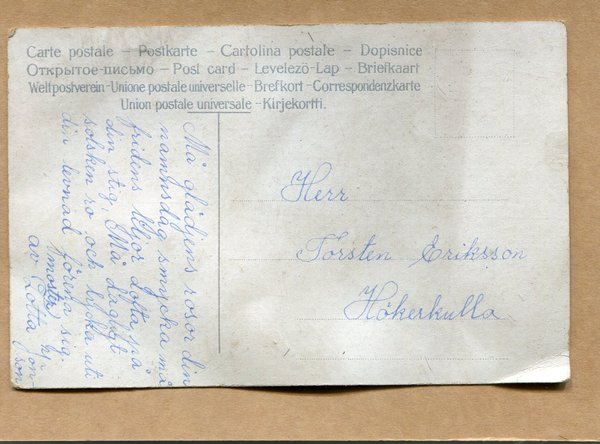 Carte postale – Postkarte – Cartolina postale – Dopisnice
Открытое-письмо – Post card – Levelező-Lap – Briefkaart
Weltpostverein-Unione postale universelle-Brefkort-Correspondenzkarte
Union postale universale-Kirjekortti.
Må glädjens rosor din
namnsdag smycka må
fridens liljor dofta på
din stig. Må dagligt
solsken ro och lycka uti
din levnad förena sig
av Lotta
Herr
Torsten Eriksson
Hökerkulla